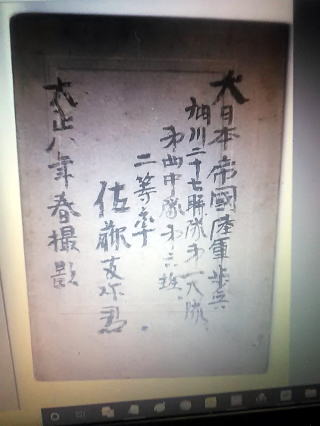 大日本帝國陸軍歩兵
旭川二十七聯隊第一大隊
第四中隊第三班
二等卒
佐藤君
大正八年春撮影